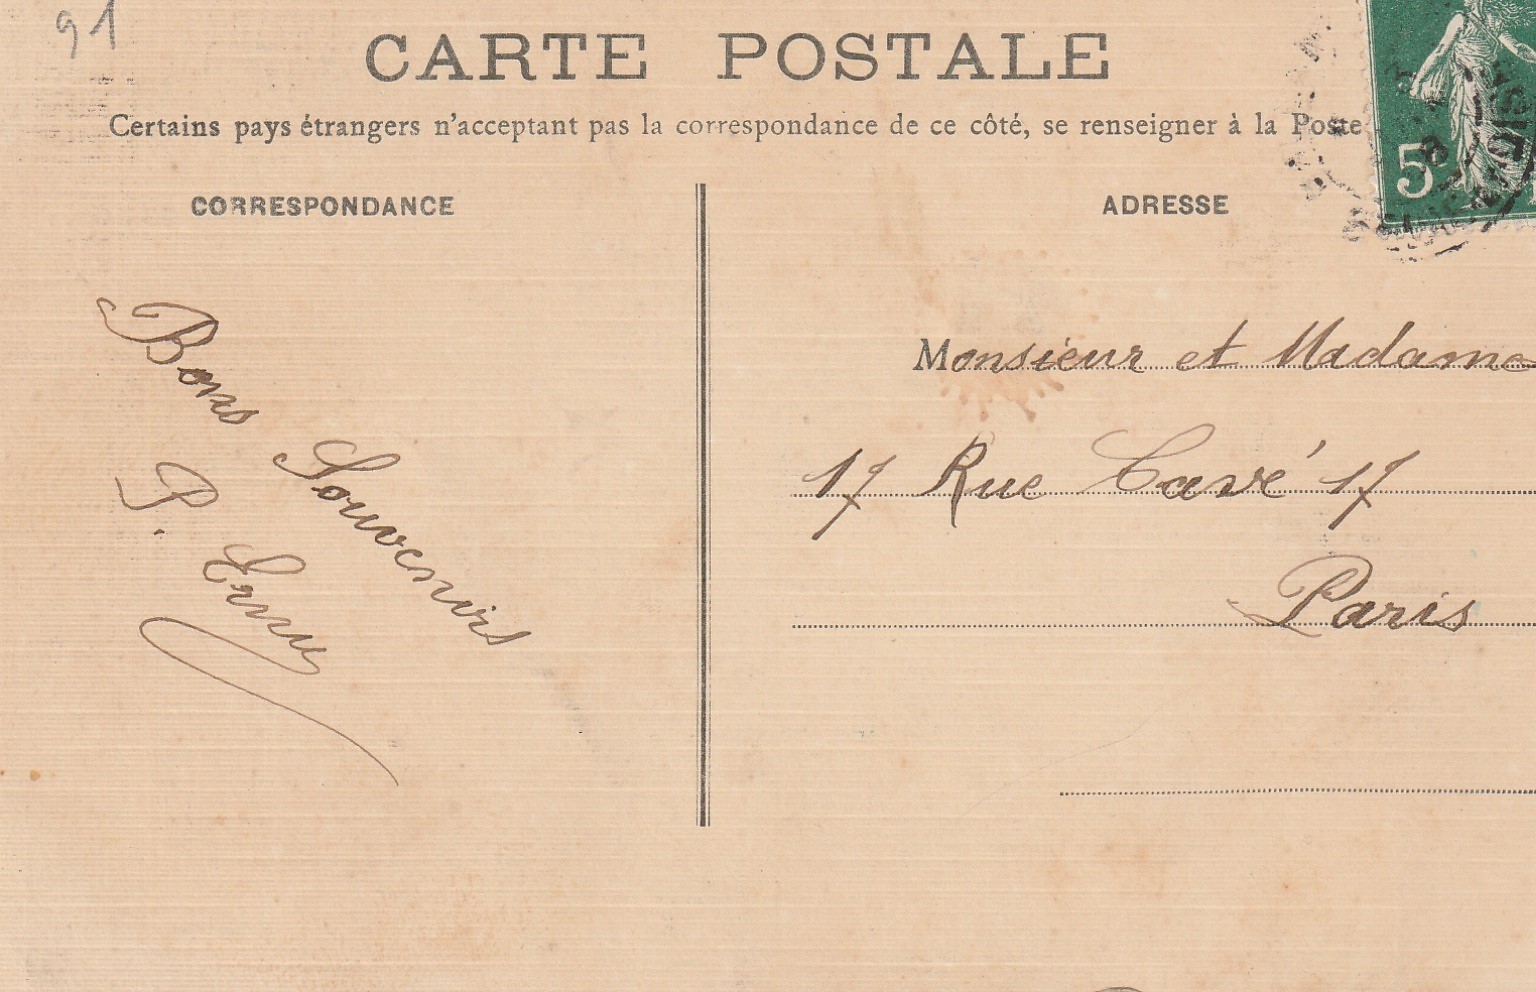 91
CARTE POSTALE
Certains pays étrangers n'acceptant pas la correspondance de ce côté, se renseigner à la Poste
CORRESPONDANCE
ADRESSE
5
Bons Souvenirs
P. Erny
Monsieur et Madame
17 Rue Cavé 17
Paris